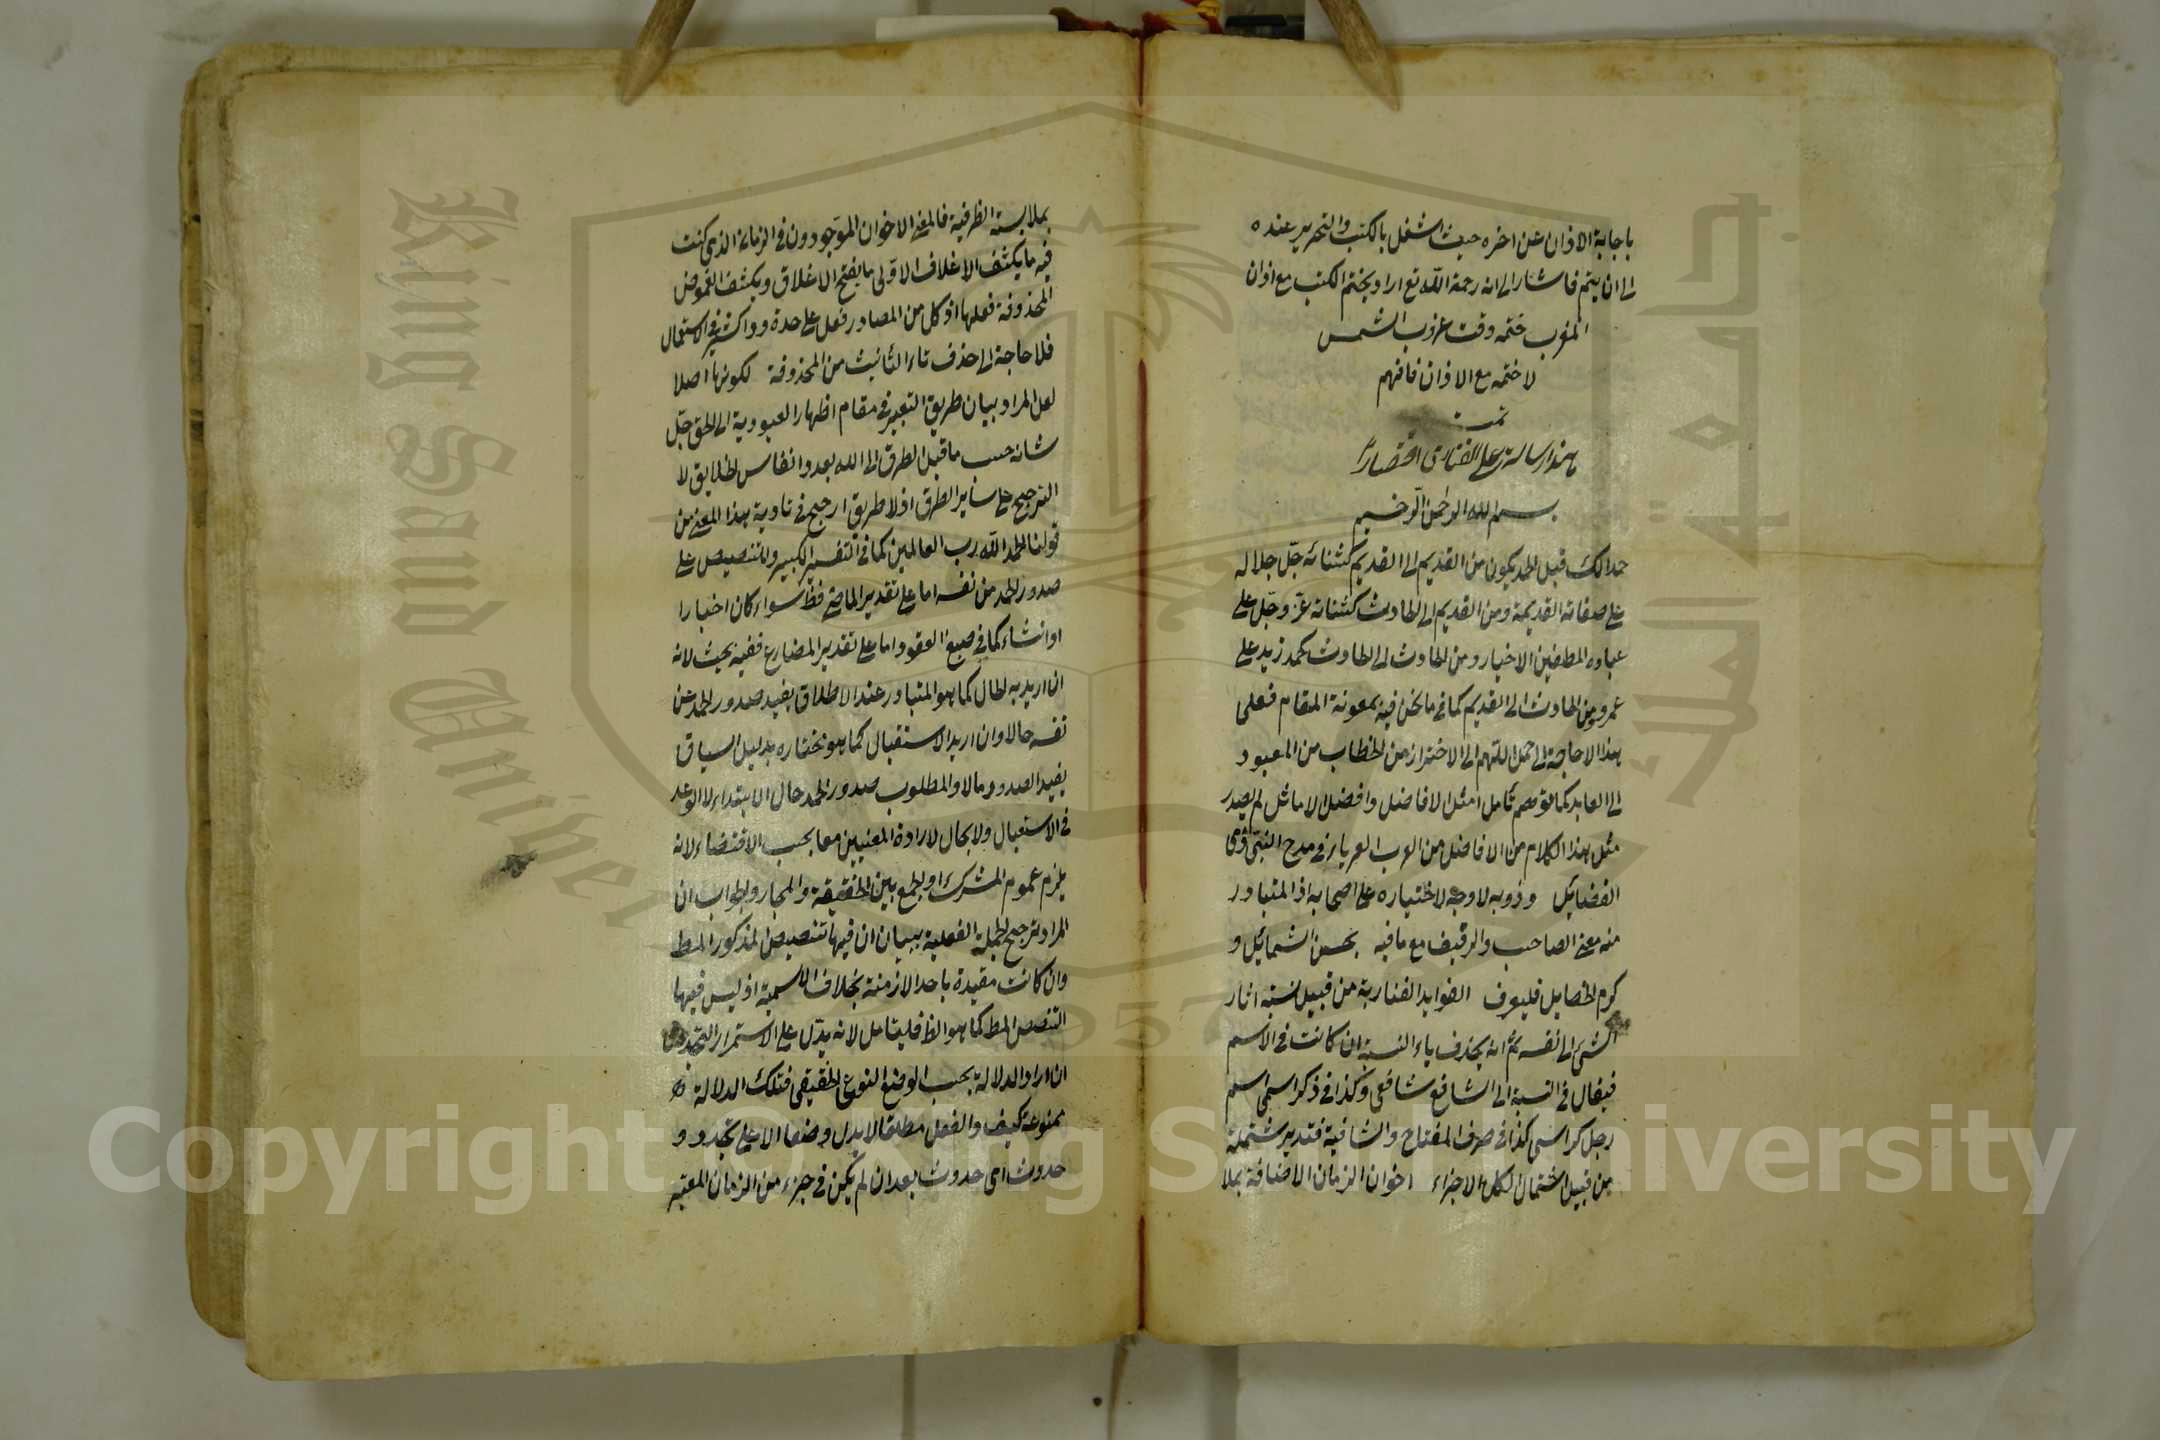 باجابة الاذان عن اخره حيث اشتغل بالكتب والتحرير عنده
الى ان يتم فاشار الى انه رحمه الله تع اراد بختم الكتب مع اذان
المغرب ختمه وقت غروب الشمس
لا ختمه مع الاذان فافهم
تمت
هذا رسالة على الفنارى
بسم الله الرحمن الرحيم
حمدا لك قيل الحمد يكون من القديم الى القديم كثنائه جل جلاله
على صفاته القديمة ومن القديم الى الحادث كثنائه عز وجل على
عباده المصطفين الاخيار ومن الحادث الى الحادث كحمد زيد على
عمرو ومن الحادث الى القديم كما فى ما نحن فيه بمعونة المقام فعلى
هذا لا حاجة الى اللهم الى الاحتراز من الخطاب من المعبود
الى العابد كما توهم تأمل امثل الافاضل وافضل الاماثل لم يصدر
مثل هذا الكلام من الافاضل من العرب العرباء فى مدح النبى
الفضايل وذويه لا وجه لاختياره على اصحابه اذ المتبادر
منه معنى الصاحب والرفيق مع ما فيه بحسن الشمائل و
كرم الخصايل فليعرف الفوايد الفنارية من قبيل نسبة اثار
الشئ الى نفسه ثم انه يحذف ياء النسبة ان كانت فى الاسم
فيقال فى النسبة الى الشافع شافعى وكذا فى ذكراسى اسم
رجل كراسى كذا فى صرف المفتاح والشافية فتدبر مشتملة
من قبيل اشتمال الكل الاجزاء اخوان الزمان الاضافة بملا
بملابسة الظرفية فالمعنى الاخوان الموجودون فى الزمان الذى كنت
فيه ما يكشف الاغلاق الاولى ما يفتح الاغلاق ويكشف الغموض
المحذوفة فعلها اذ كل من المصادر فعل على حدة و فى الاستعمال
فلا حاجة الى حذف تاء التانيث من المحذوفة لكونها اصلا
لعل المراد بيان طريق التعبير فى مقام اظهار العبودية الى الحق جل
شانه حسب ما قيل الطرق الى الله بعدد انفاس الخلايق لا
الترجيح على ساير الطرق اذ لا طريق ارجح فى تادية هذا المعنى من
قولنا الحمد لله رب العالمين كما فى التفسير الكبير وللتنصيص على
صدور الحمد من نفسه اما على تقدير الماضى فظ سواء كان اخبارا
او انشاء كما فى صيغ العقود اما على تقدير المضارع ففيه بحث لانه
ان اريد به الحال كما هو المتبادر عند الاطلاق يفيد صدور الحمد عن
نفسه حالا وان اريد الاستقبال كما هو مختاره بدليل السياق
يفيد الصدور مالا والمطلوب صدور الحمد حال الابتداء لا الوعد
فى الاستقبال ولا مجال لارادة المعنيين معا بحسب الاقتضاء لانه
يلزم عموم المشترك او الجمع بين الحقيقة والمجاز والجواب ان
المراد ترجيح الجملة الفعلية ببيان ان فيها تنصيص المذكور المط
وان كانت مقيدة باحد الازمنة بخلاف الاسمية اذ ليس فيها
التنصص المط كما هو الظ فليتامل لانه يدل على الاستمرار التجددى
ان اراد الدلالة بحسب الوضع النوعى الحقيقى فتلك الدلالة
ممنوعة كيف والفعل مطلقا لا يدل وضعا الا على تجدد و
حدوث اى حدوث بعد ان لم يكن فى جزء من الزمان المعتبر